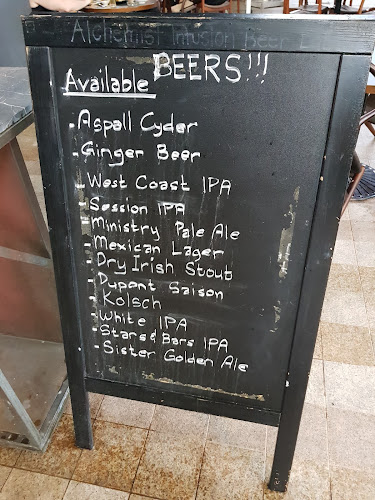 Alchemist Infusion Beer
BEERS!!!
Available
- Aspall Cyder
- Ginger Beer
- West Coast IPA
- Session IPA
- Ministry Pale Ale
- Mexican Lager
- Dry Irish Stout
- Dupont Saison
- Kolsch
- White IPA
- Stars & Bars IPA
- Sister Golden Ale